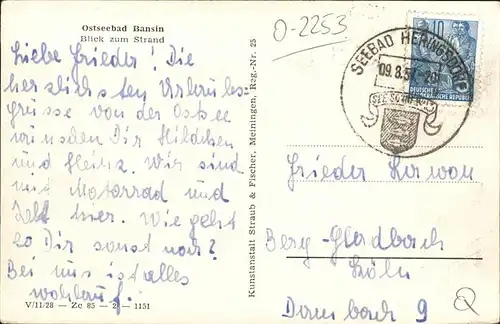 Ostseebad Bansin
Blick zum Strand
O-2253
Liebe Frieder! Die
herzlichsten Urlaubs-
grüsse von der Ostsee
wünschen Dir Hildchen
und Heinz. Wir sind
mit Motorrad und
Zelt hier. Wie geht
es Dir sonst noch?
Bei uns ist alles
wohlauf.
V/11/28 — Ze 85 — 2 — 1151
Kunstanstalt Straub & Fischer, Meiningen, Reg.-Nr. 25
SEEBAD HERINGSDORF
09.8.5
10
DEUTSCHE
DEMOKRATISCHE REPUBLIK
Frieder
Berg-Gladbach
Köln
Dombach 9
Q